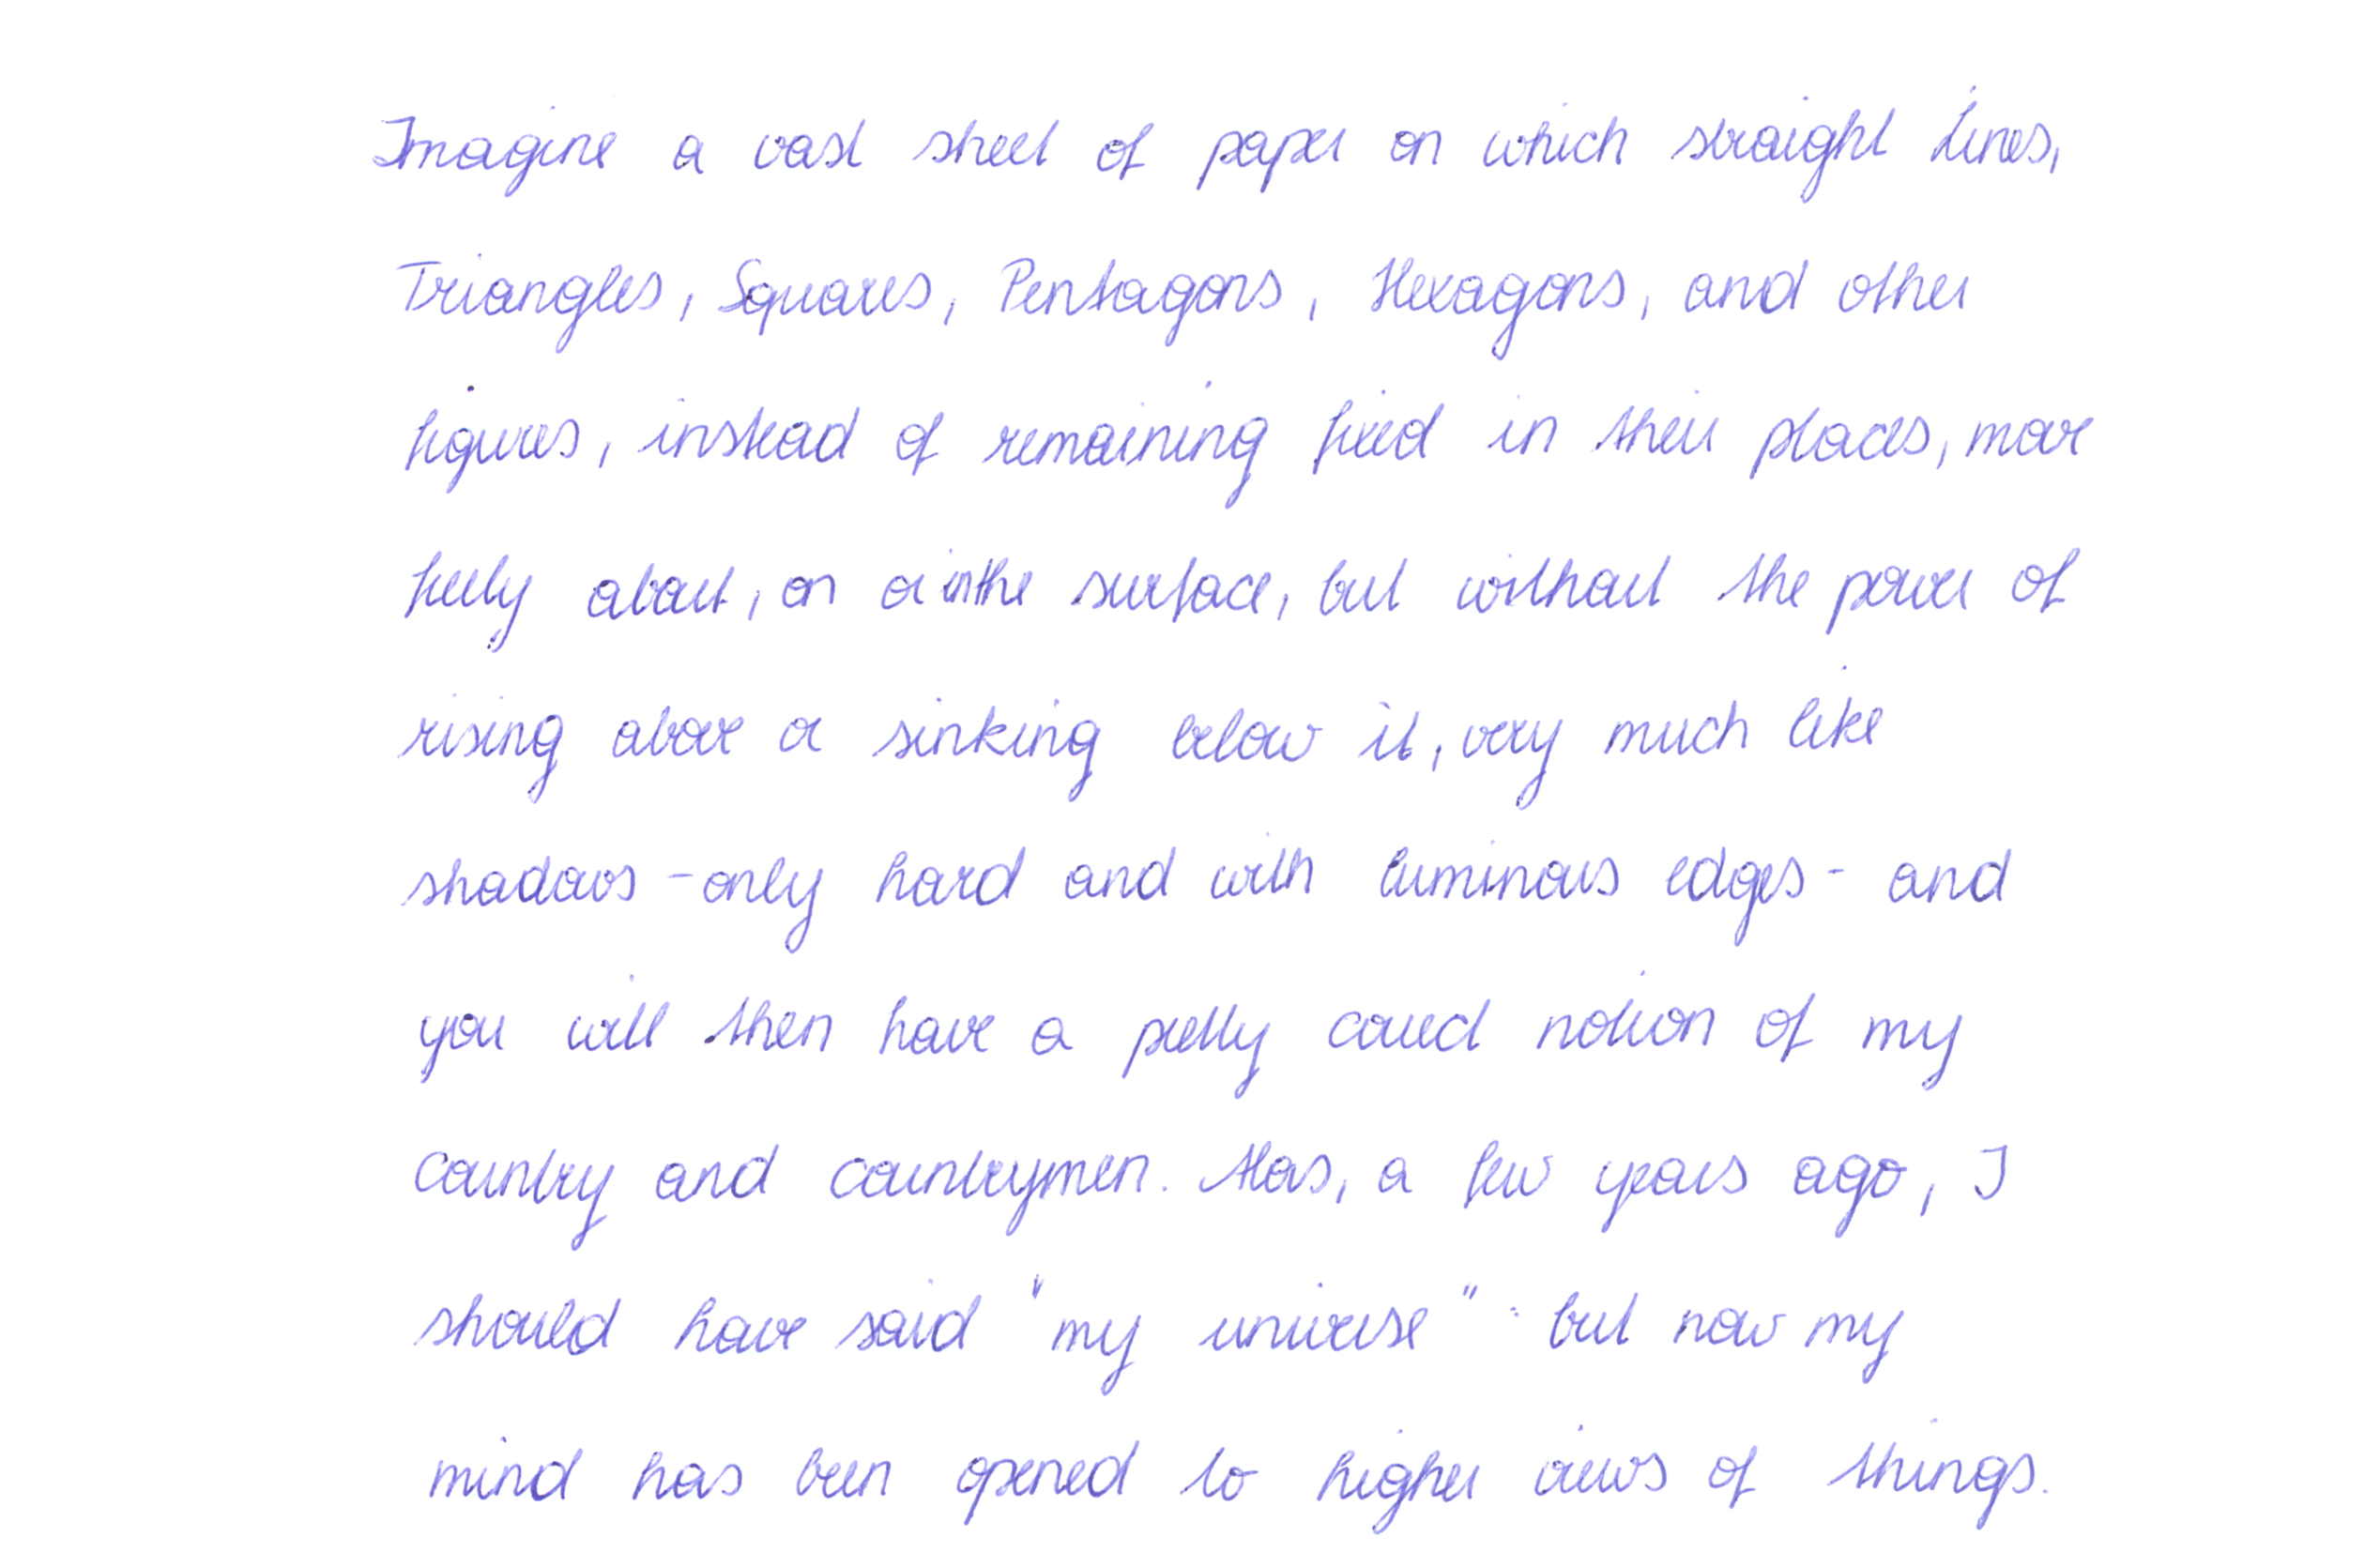 Imagine a vast sheet of paper on which straight Lines,
Triangles, Squares, Pentagons, Hexagons, and other
figures, instead of remaining fixed in their places, move
freely about, on or in the surface, but without the power of
rising above or sinking below it, very much like
shadows - only hard and with luminous edges - and
you will then have a pretty correct notion of my
country and countrymen. Alas, a few years ago, I
should have said "my universe" : but now my
mind has been opened to higher views of things.